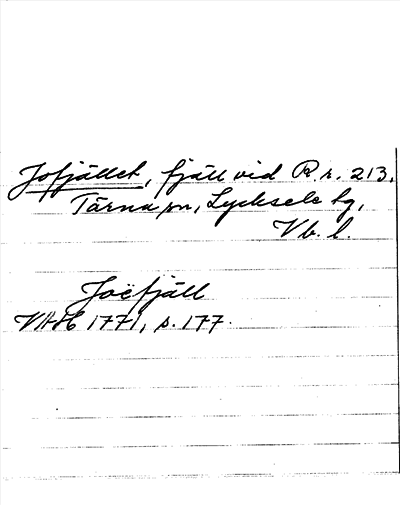 Jofjället, fjäll vid R.r. 213,
Tärna sn, Lycksele lg,
Vb. l.
Joëfjäll
VAH 1771, s. 177.